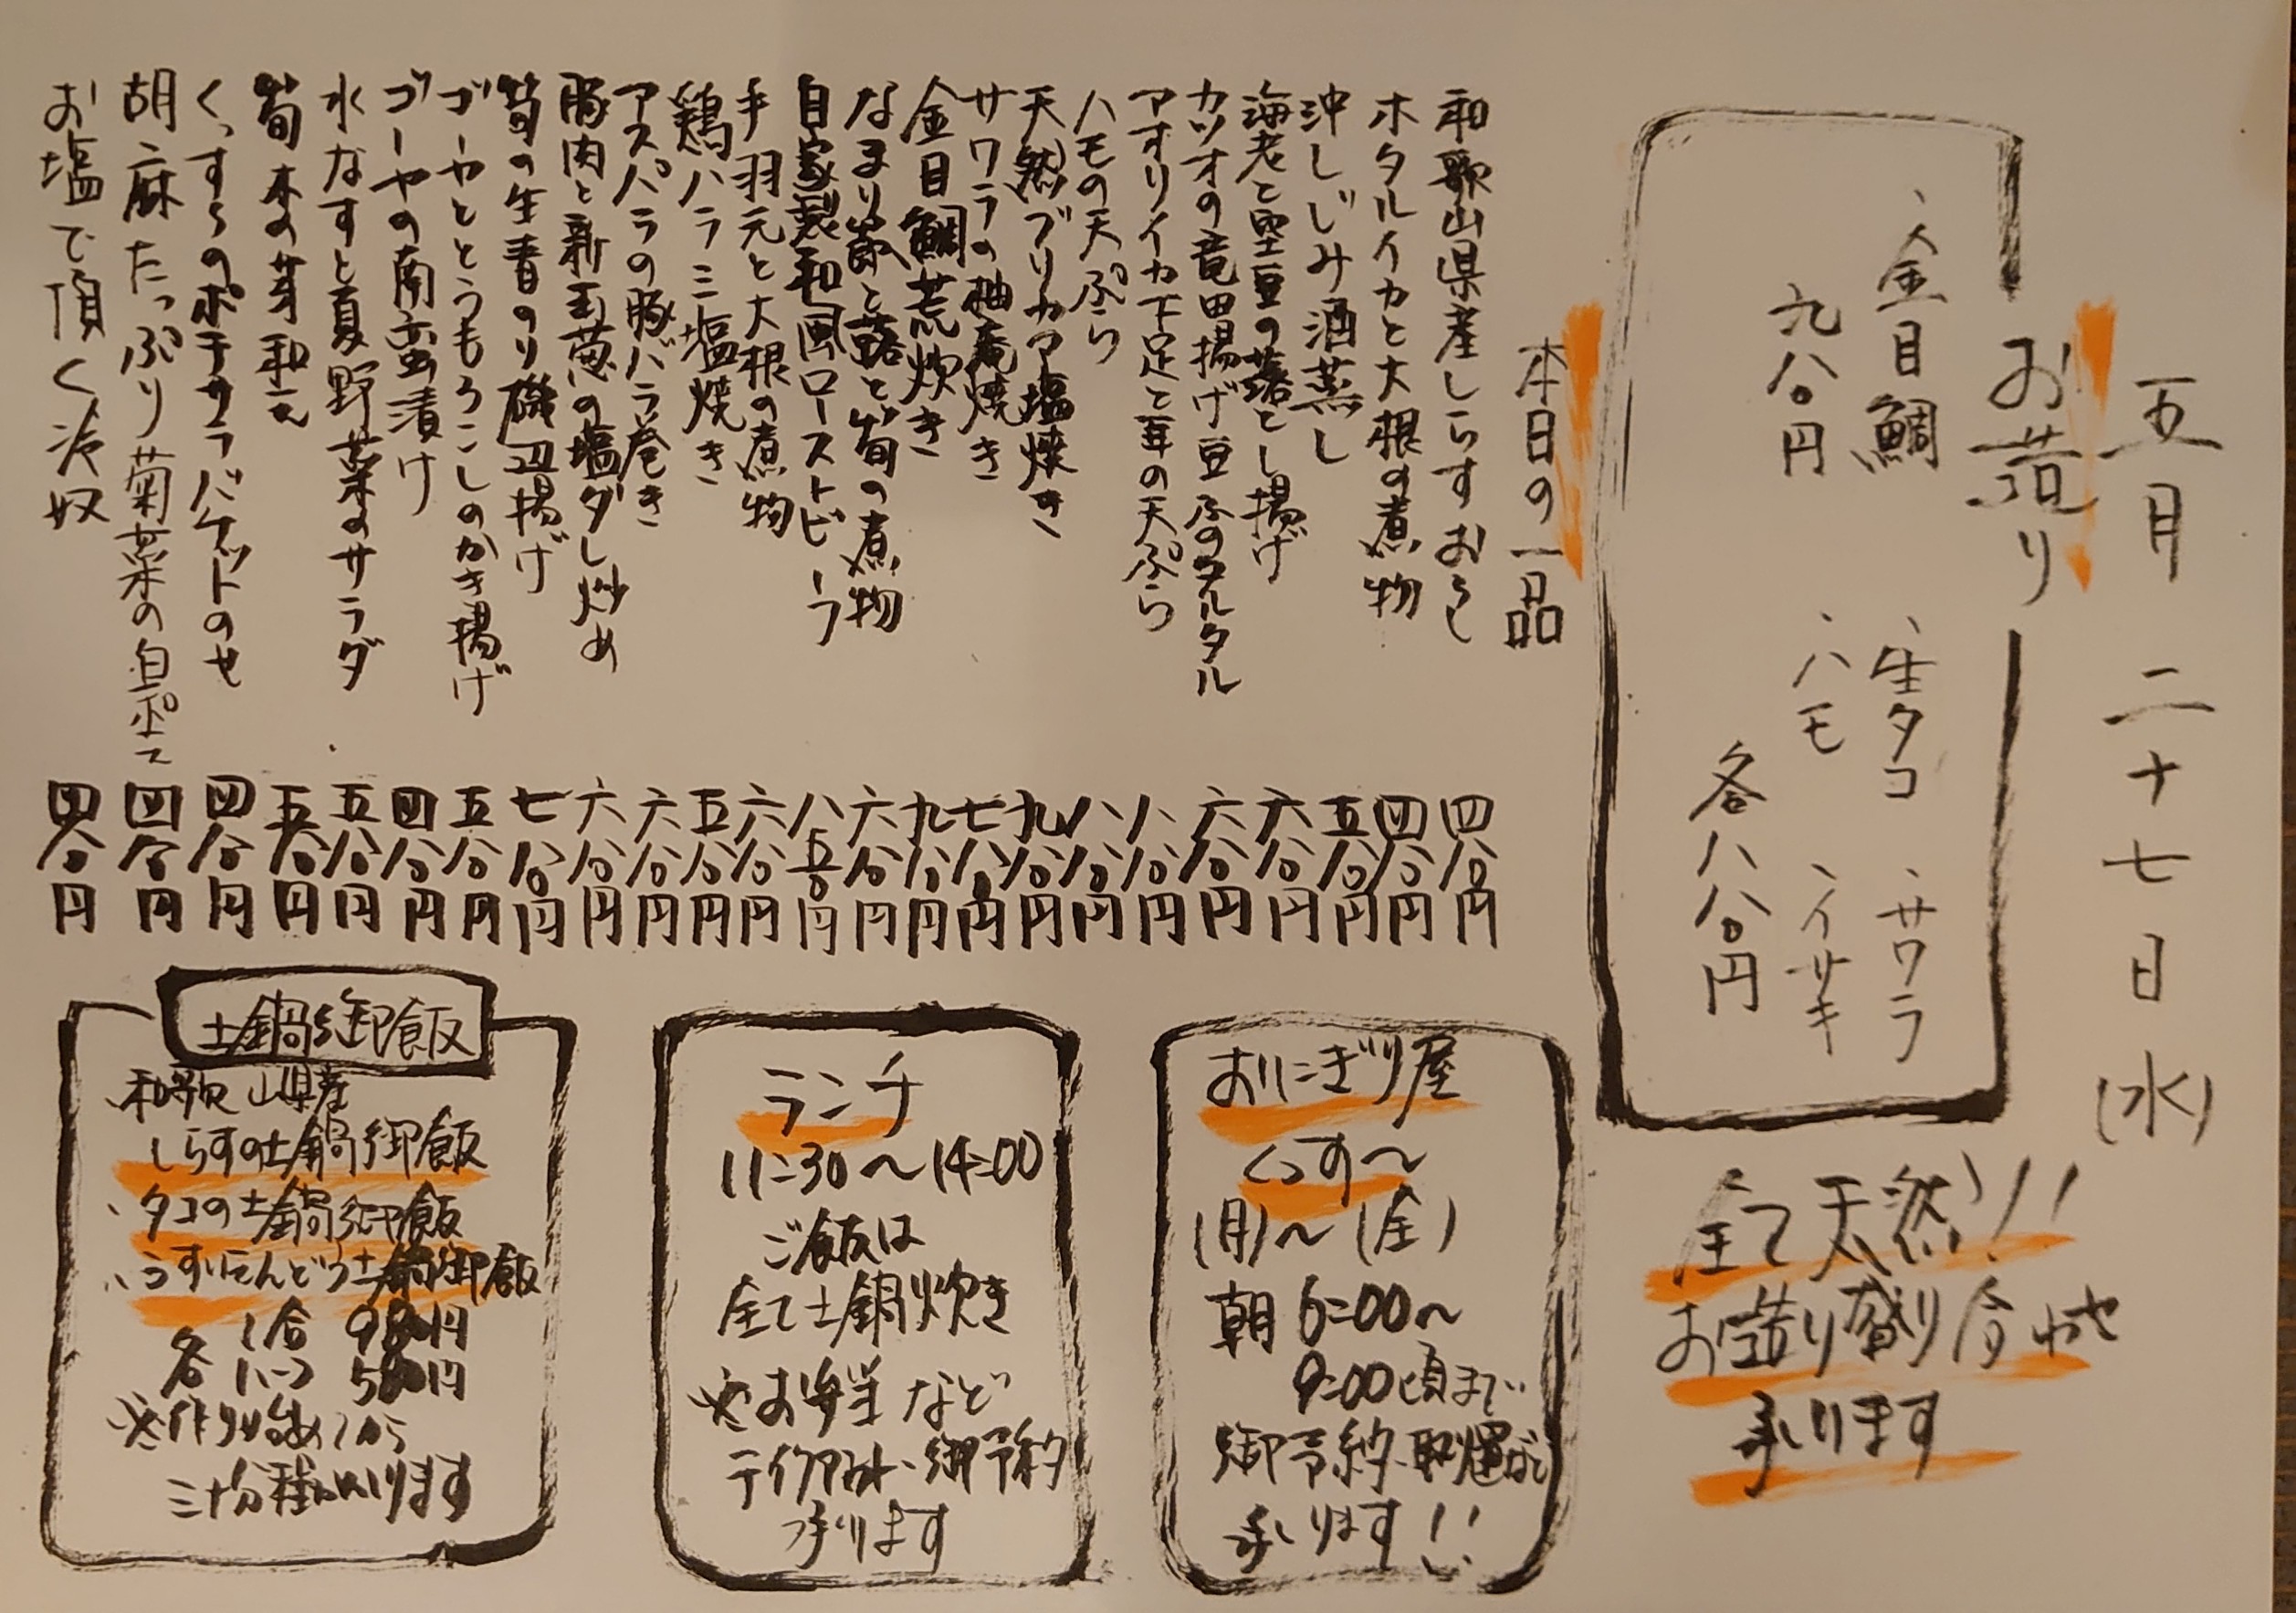 五月二十七日(水)
お造り
、金目鯛
九八〇円
、生タコ 、サワラ
、ハモ 、イサキ
各八八〇円
全て天然!!
お造り盛り合わせ
承ります
本日の一品
和歌山県産しらすおろし 四八〇円
ホタルイカと大根の煮物 四八〇円
沖しじみ酒蒸し 五八〇円
海老と空豆の落とし揚げ 六八〇円
カツオの竜田揚げ豆ふのタルタル 六八〇円
アオリイカ下足と茸の天ぷら 八八〇円
ハモの天ぷら 八八〇円
天然ブリカマ塩焼き 九八〇円
サワラの柚庵焼き 七八〇円
金目鯛荒炊き 九八〇円
なまり節と蕗と筍の煮物 六八〇円
自家製和風ローストビーフ 八五〇円
手羽元と大根の煮物 六八〇円
鶏ハラミ塩焼き 五八〇円
アスパラの豚バラ巻き 六八〇円
豚肉と新玉葱の塩ダレ炒め 六八〇円
筍の生青のり磯辺揚げ 七八〇円
ゴーヤととうもろこしのかき揚げ 五八〇円
ゴーヤの南蛮漬け 四八〇円
水なすと夏野菜のサラダ 五八〇円
筍木の芽和え 五八〇円
くっすらのポテサラバケットのせ 四八〇円
胡麻たっぷり菊菜の白和え 四八〇円
お塩で頂く冷奴 四八〇円
おにぎり屋
くっす〜
(月)〜(金)
朝6:00〜
9:00頃まで
御予約・取置き
承ります!!
ランチ
11:30〜14:00
ご飯は
全て土鍋炊き
※お弁当など
テイクアウト・御予約
承ります
土鍋御飯
和歌山県産
しらすの土鍋御飯
、タコの土鍋御飯
、うすいえんどう土鍋御飯
各 1合 980円
※作り始めてから
三十分程かかります